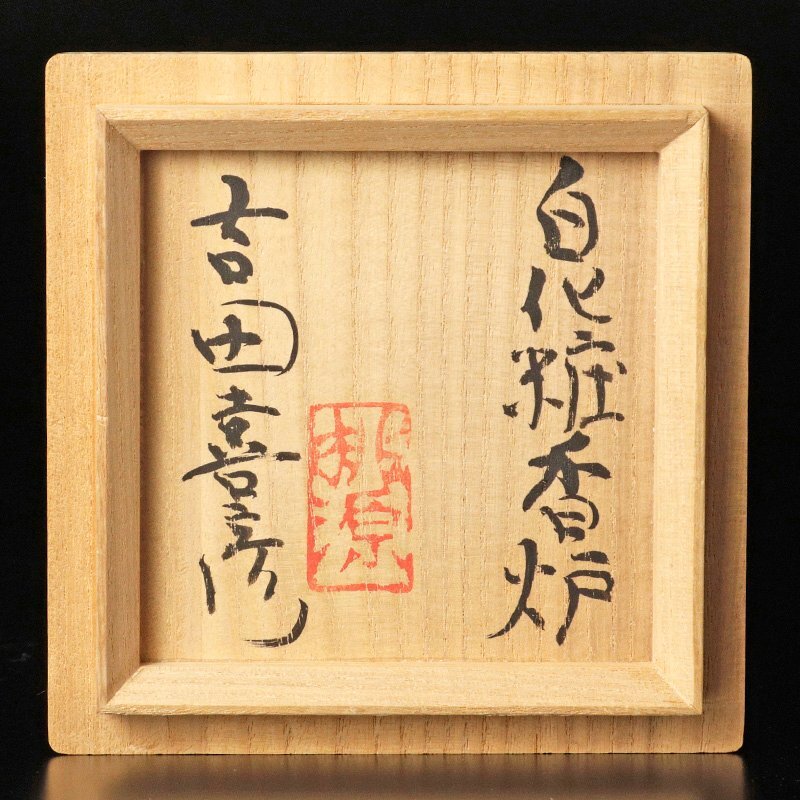 白化粧香炉
桃源
吉田喜彦